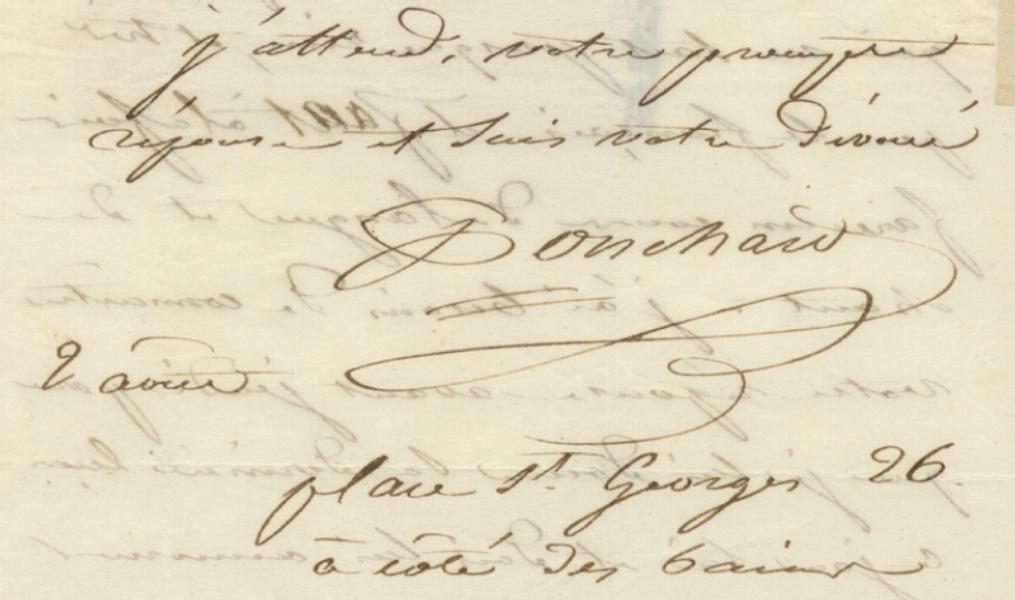 j'attend, votre prompte
réponse et suis votre dévoué
Ponchard
2 aout
place St. Georges 26.
à côté des bains